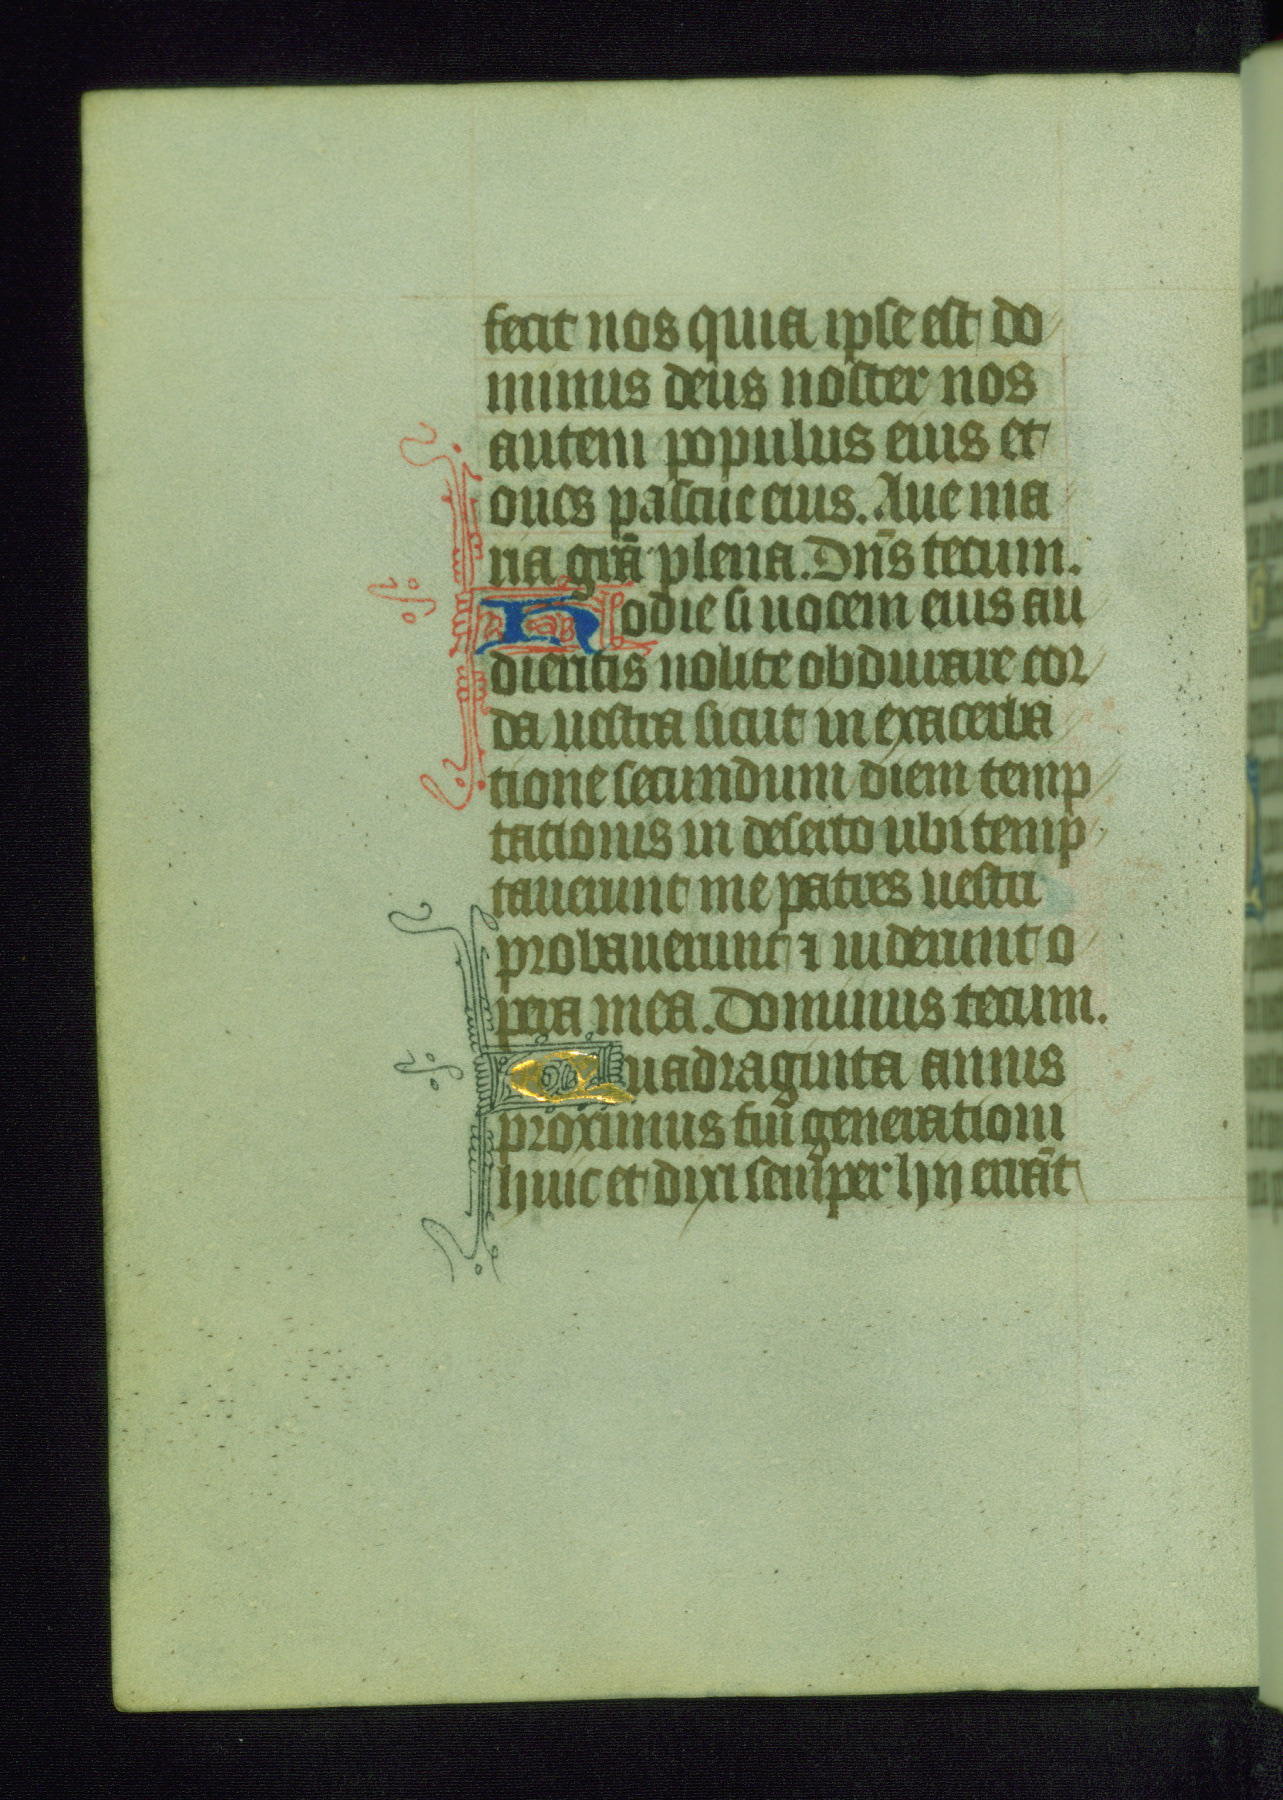 fecit nos quia ipse est do
minus deus noster nos
autem populus eius et
oues pascue eius. Aue ma
ria grã plena. Dñs tecum.
Hodie si uocem eius au
dieritis nolite obdurare cor
da uestra sicut in exacerba
tione secundum diem temp
tationis in deserto ubi temp
tauerunt me patres uestri
probauerunt ⁊ uiderunt o
pera mea. Dominus tecum.
Quadraginta annis
proximus fui generationi
huic et dixi semper hii errãt